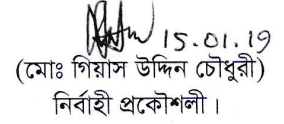 15.01.19
(মোঃ গিয়াস উদ্দিন চৌধুরী)
নির্বাহী প্রকৌশলী।